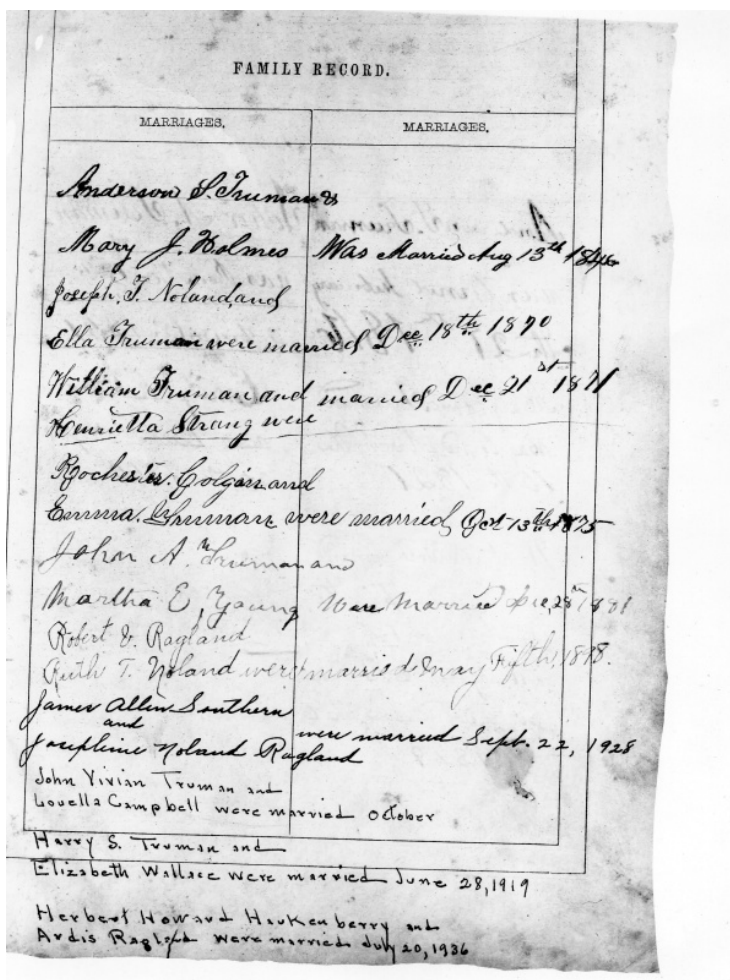 FAMILY RECORD.
MARRIAGES. MARRIAGES.
Anderson S. Truman &
Mary J. Holmes Was Married Aug 13th 1846
Joseph T. Noland, and
Ella Truman were married Dec 18th 1870
William Truman and married Dec 21st 1871
Henrietta Strang were
Rochester Colgin and
Emma Truman were married Oct 13th 1875
John A Truman and
Martha E, Young Were Married Dec, 28th 1881
Robert E. Ragland
Ruth T. Noland were married May Fifth, 1898.
James Allen Southern
and
were married Sept. 22, 1928
Josephine Noland Ragland
John Vivian Truman and
Louella Campbell were married October
Harry S. Truman and
Elizabeth Wallace were married June 28, 1919
Herbert Howard Haukenberry and
Ardis Ragland were married July 20, 1936